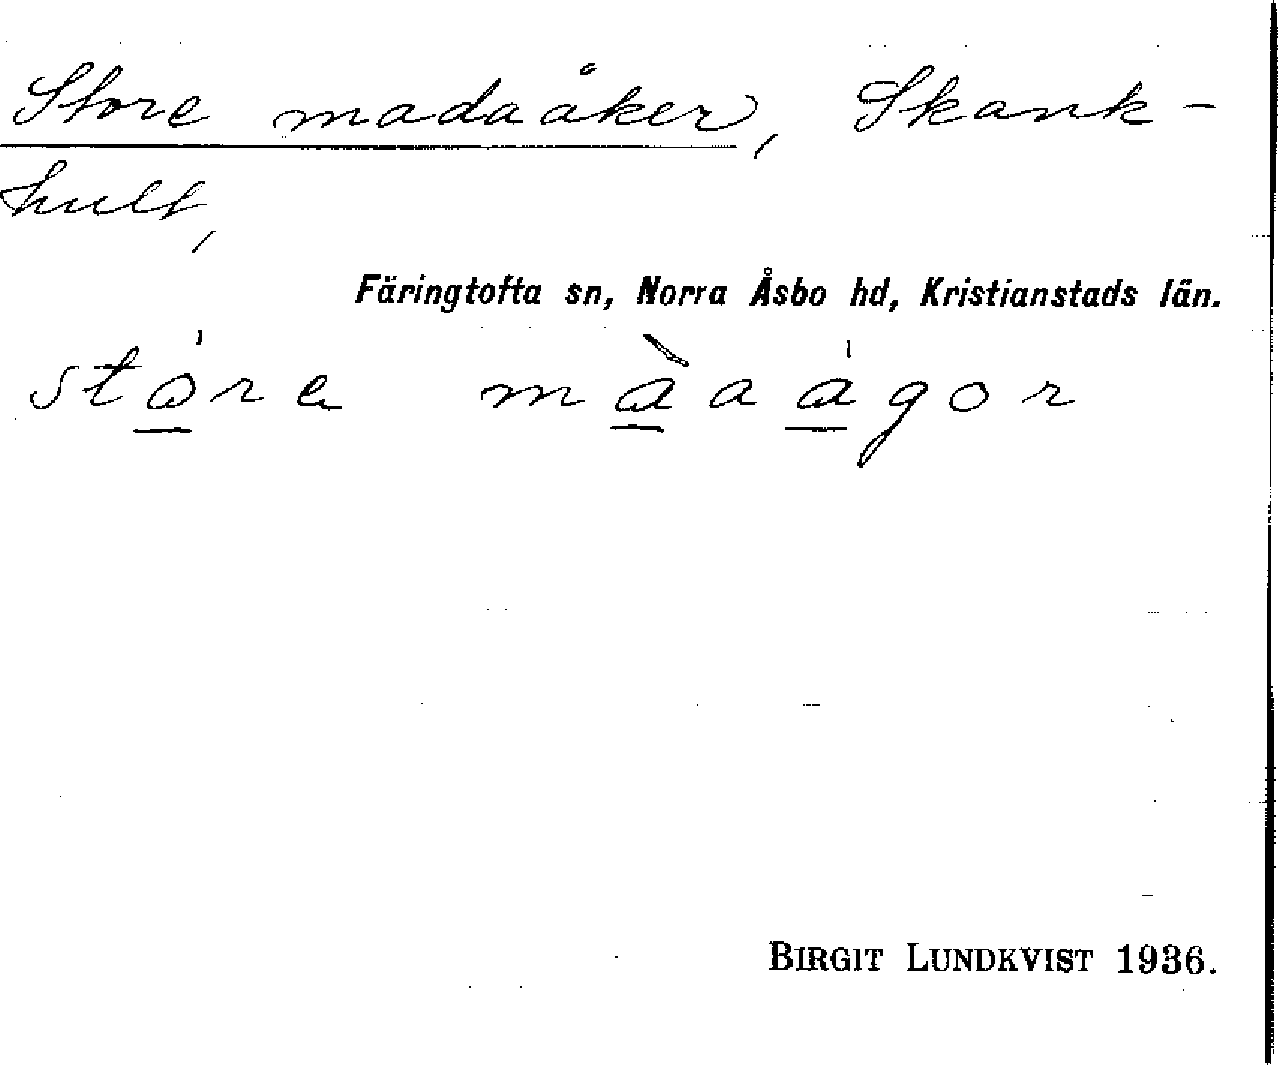 Store madaåker, Skank-
hult,
Färingtofta sn, Norra Åsbo hd, Kristianstads län.
stóre màaágor
BIRGIT LUNDKVIST 1936.